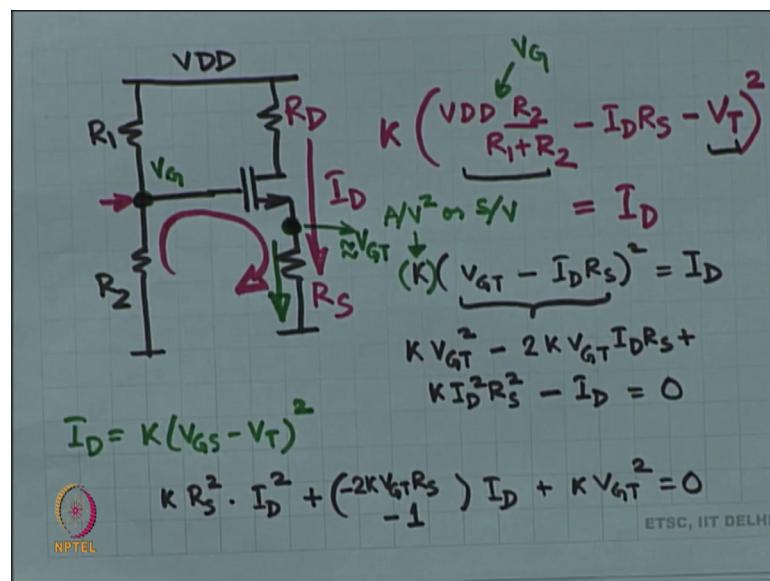 VDD
R1
RD
VG
ID
≈VGT
R2
RS
VG
K ( VDD R2 / R1 + R2 - ID RS - VT )²
= ID
A/V² or S/V
(K) ( VGT - ID RS )² = ID
K VGT² - 2 K VGT ID RS +
K ID² RS² - ID = 0
ID = K (VGS - VT)²
K RS² · ID² + (-2KVGT RS - 1) ID + K VGT² = 0
NPTEL
ETSC, IIT DELHI